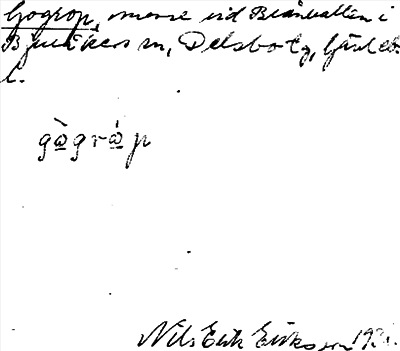 Gogrop, mosse vid Blånvallen i
Bjuråkers sn, Delsbo tg, Gävleb.
l.
gògráp
Nils Erik Eriksson 193